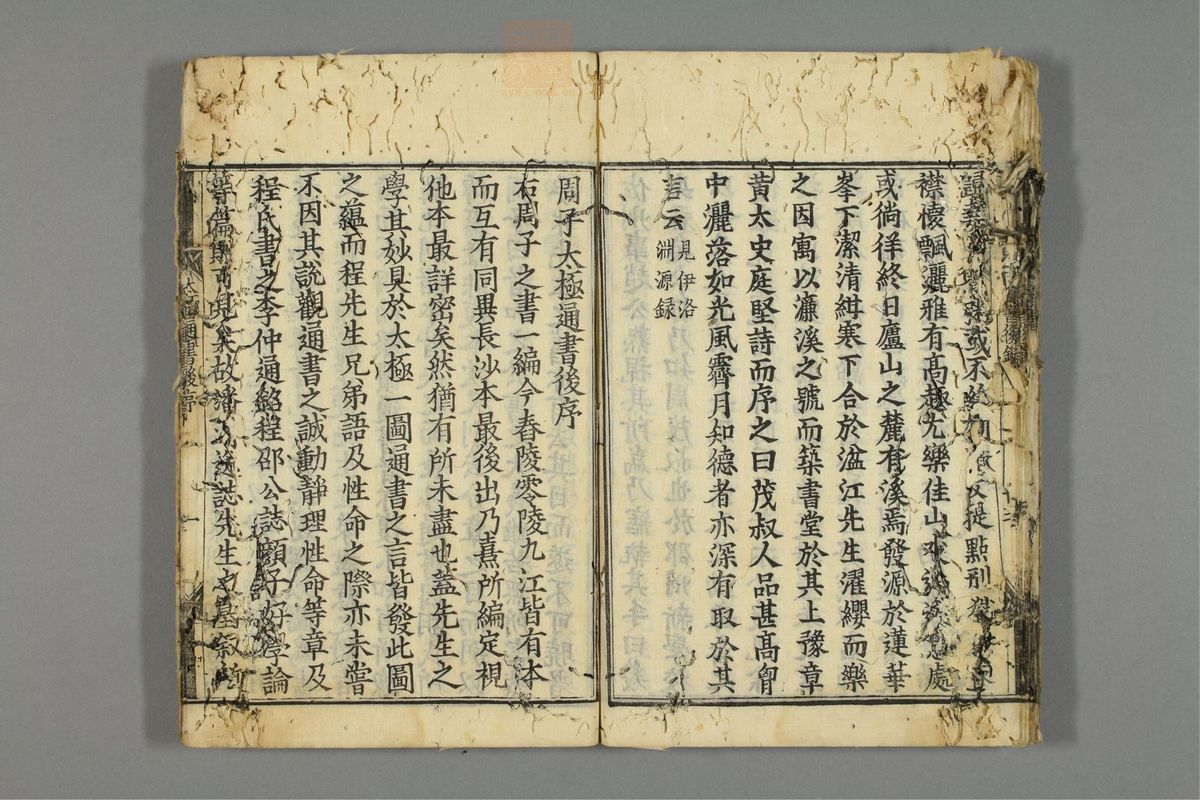 襟懷飄灑雅有髙趣尤樂佳山水遇適意處
或徜徉終日廬山之麓有溪焉發源於蓮華
峯下潔清紺寒下合於湓江先生濯纓而樂
之因寓以濂溪之號而築書堂於其上豫章
黄太史庭堅詩而序之曰茂叔人品甚髙胷
中灑落如光風霽月知德者亦深有取於其
言云見伊洛
淵源録
周子太極通書後序
右周子之書一編今舂陵零陵九江皆有本
而互有同異長沙本最後出乃熹所編定視
他本最詳密矣然猶有所未盡也蓋先生之
學其妙具於太極一圖通書之言皆發此圖
之蘊而程先生兄弟語及性命之際亦未嘗
不因其說觀通書之誠動靜理性命等章及
程氏書之李仲通銘程邵公誌顔子好學論
等篇則可見矣故潘清逸誌先生之墓叙所
太極通書後序